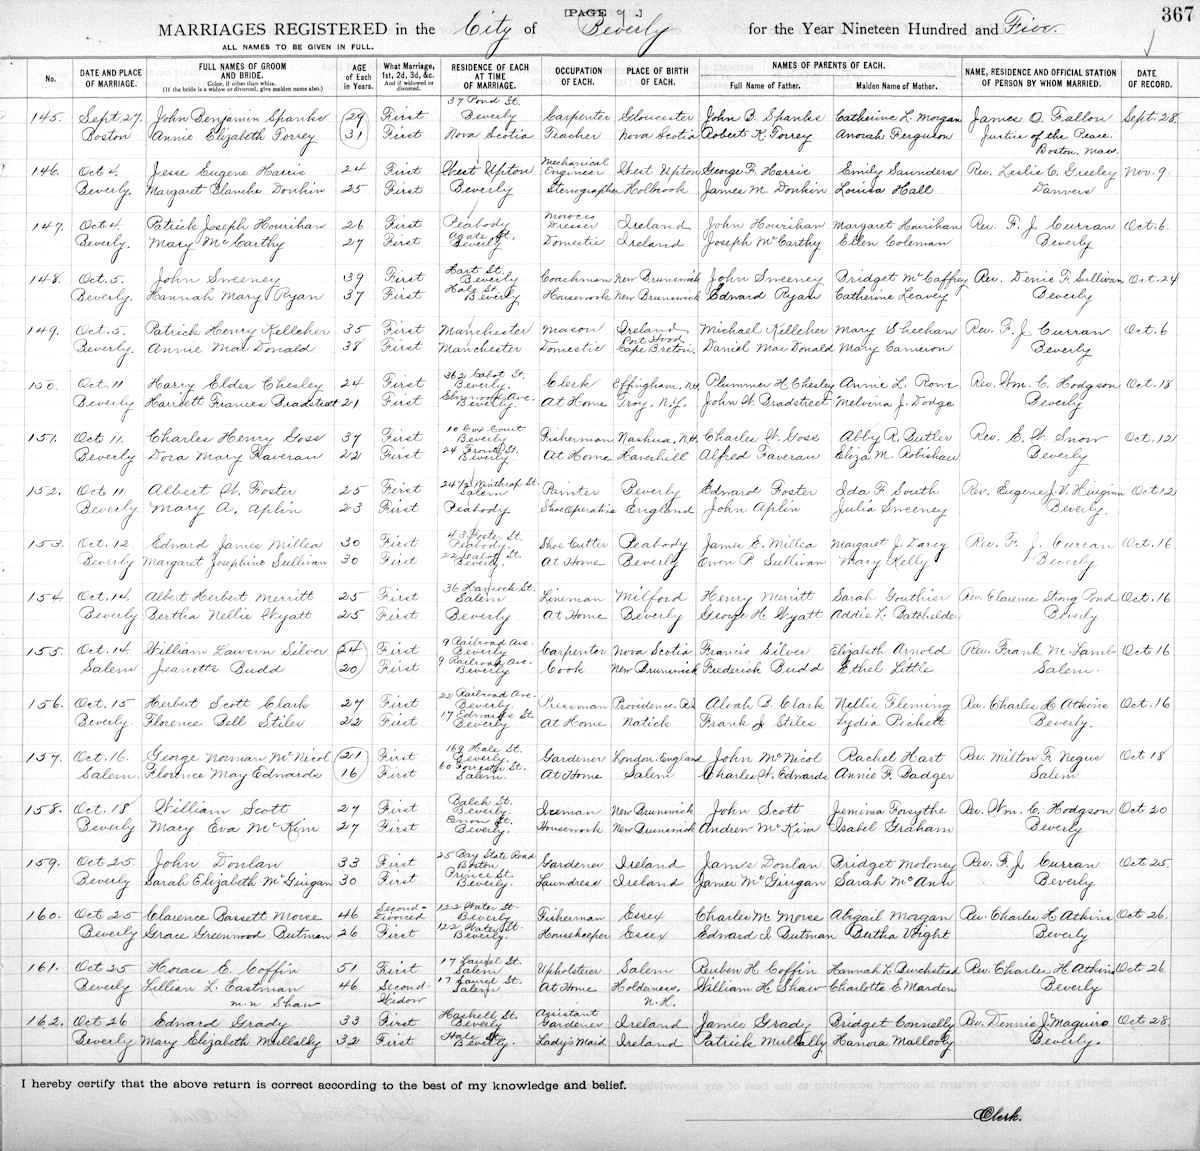 [PAGE 9.] 367
MARRIAGES REGISTERED in the City of Beverly for the Year Nineteen Hundred and Five.
ALL NAMES TO BE GIVEN IN FULL.
No. DATE AND PLACE OF MARRIAGE. FULL NAMES OF GROOM AND BRIDE. Color, if other than white. (If the bride is a widow or divorced, give maiden name also.) AGE of Each in Years. What Marriage, 1st, 2d, 3d, &c. And if widowed or divorced. RESIDENCE OF EACH AT TIME OF MARRIAGE. OCCUPATION OF EACH. PLACE OF BIRTH OF EACH. NAMES OF PARENTS OF EACH. Full Name of Father. Maiden Name of Mother. NAME, RESIDENCE AND OFFICIAL STATION OF PERSON BY WHOM MARRIED. DATE OF RECORD.
145. Sept. 27. John Benjamin Spanks 29 First 37 Pond St. Beverly Carpenter Gloucester John B. Spanks Catherine L. Morgan James O. Fallon Sept. 28
Boston Annie Elizabeth Torrey 31 First Nova Scotia Teacher Nova Scotia Robert K. Torrey Anorah Ferguson Justice of the Peace. Boston, Mass.
146. Oct 4. Jesse Eugene Harris 24 First West Upton Mechanical Engineer West Upton George F. Harris Emily Saunders Rev. Leslie C. Greeley Nov. 9.
Beverly. Margaret Blanche Donkin 25 First Beverly Stenographer Holbrook James M. Donkin Louisa Hall Danvers
147. Oct 4. Patrick Joseph Hourihan 26 First Peabody Morocco Dresser Ireland John Hourihan Margaret Hourihan Rev. F. J. Curran Oct. 6.
Beverly. Mary McCarthy 27 First Agate St. Beverly Domestic Ireland Joseph McCarthy Ellen Coleman Beverly
148. Oct. 5. John Sweeney 39 First Hart St. Beverly Coachman New Brunswick John Sweeney Bridget McCaffrey Rev. Denis F. Sullivan Oct. 24
Beverly. Hannah Mary Ryan 37 First Hale St. Beverly Housework New Brunswick Edward Ryan Catherine Leavey Beverly
149. Oct. 5. Patrick Henry Kelleher 35 First Manchester Mason Ireland Michael Kelleher Mary Sheehan Rev. F. J. Curran Oct. 6
Beverly. Annie MacDonald 38 First Manchester Domestic Port Hood Cape Breton. Daniel MacDonald Mary Cameron Beverly
150. Oct. 11 Harry Elder Chesley 24 First 362 Cabot St. Beverly. Clerk Effingham, N.H. Plummer H. Chesley Annie L. Rowe Rev. Wm. C. Hodgson Oct. 18
Beverly Harriett Frances Bradstreet 21 First Elmwood Ave. Beverly. At Home Troy, N.Y. John W. Bradstreet Melvina J. Dodge Beverly
151. Oct 11. Charles Henry Goss 37 First 10 Cox Court Beverly Fisherman Nashua, N.H. Charles W. Goss Abby R. Butler Rev. E. W. Snow Oct. 12
Beverly. Dora Mary Faverau 22 First 24 Front St. Beverly At Home Haverhill Alfred Faverau Eliza M. Robishaw Beverly
152. Oct 11 Albert W. Foster 25 First 24 1/2 Winthrop St. Salem Painter Beverly Edward Foster Ida F. South Rev. Eugene J. V. Huiginn Oct. 12
Beverly. Mary A. Aplin 23 First Peabody Shoe Operative England John Aplin Julia Sweeney Beverly.
153. Oct. 12 Edward James Millea 30 First 43 Foster St. Peabody Shoe Cutter Peabody James E. Millea Margaret J. Darcy Rev. F. J. Curran Oct. 16
Beverly Margaret Josephine Sullivan 30 First 22 Cabot St. Beverly. At Home Beverly Owen P. Sullivan Mary Kelly Beverly
154. Oct. 14. Albert Herbert Merritt 25 First 36 Hancock St. Salem Lineman Milford Henry Merritt Sarah Gouthier Rev. Clarence Strong Pond Oct. 16
Beverly Bertha Nellie Wyatt 25 First Beverly At Home Beverly George H. Wyatt Addie L. Batchelder Beverly
155. Oct. 14 William Lavern Silver 24 First 9 Railroad Ave. Beverly Carpenter Nova Scotia Francis Silver Elizabeth Arnold Rev. Frank M. Lamb Oct 16
Salem Jeanette Budd 20 First 9 Railroad Ave. Beverly Cook New Brunswick Frederick Budd Ethel Little Salem.
156. Oct. 15 Herbert Scott Clark 27 First 22 Railroad Ave. Beverly. Pressman Providence, R.I. Alvah B. Clark Nellie Fleming Rev. Charles H. Atkins Oct. 16
Beverly. Florence Bell Stiles 22 First 17 Edwards St. Beverly At Home Natick Frank J. Stiles Lydia Pickett Beverly.
157. Oct. 16. George Norman McNicol 21 First 163 Hale St. Beverly. Gardener London, England John McNicol Rachel Hart Rev. Milton F. Negus Oct 18
Salem. Florence May Edwards 16 First 60 Forrester St. Salem At Home Salem Charles W. Edwards Annie F. Badger Salem
158. Oct. 18 William Scott 27 First Balch St. Beverly Iceman New Brunswick John Scott Jemima Forsythe Rev. Wm. C. Hodgson Oct 20
Beverly Mary Eva McKim 27 First Enon St. Beverly. Housework New Brunswick Andrew McKim Isabel Graham Beverly
159. Oct 25. John Donlan 33 First 25 Bay State Road Boston Gardener Ireland James Donlan Bridget Moloney Rev. F. J. Curran Oct 25.
Beverly Sarah Elizabeth McGuigan 30 First Prince St. Beverly. Laundress Ireland James McGuigan Sarah McAnn Beverly
160. Oct 25 Clarence Bassett Morse 46 Second-Divorced 122 Water St. Beverly Fisherman Essex Charles M. Morse Abigail Morgan Rev. Charles H. Atkins Oct 26.
Beverly Grace Greenwood Butman 26 First 122 Water St. Beverly. Housekeeper Essex Edward I. Butman Bertha Wright Beverly
161. Oct 25 Horace E. Coffin 51 First 17 Laurel St. Salem Upholsterer Salem Reuben H. Coffin Hannah L. Buckstead Rev. Charles H. Atkins Oct 26.
Beverly Lillian L. Eastman 46 Second-Widow 17 Laurel St. Salem At Home Holderness, N.H. William H. Shaw Charlotte E. Marden Beverly
m.n. Shaw
162. Oct 26 Edward Grady 33 First Haskell St. Beverly Assistant Gardener Ireland James Grady Bridget Connelly Rev. Dennis J. Maguire Oct 28.
Beverly Mary Elizabeth Mullally 32 First Hale St. Beverly. Lady's Maid Ireland Patrick Mullally Hanora Mallooly Beverly.
I hereby certify that the above return is correct according to the best of my knowledge and belief.
Clerk.